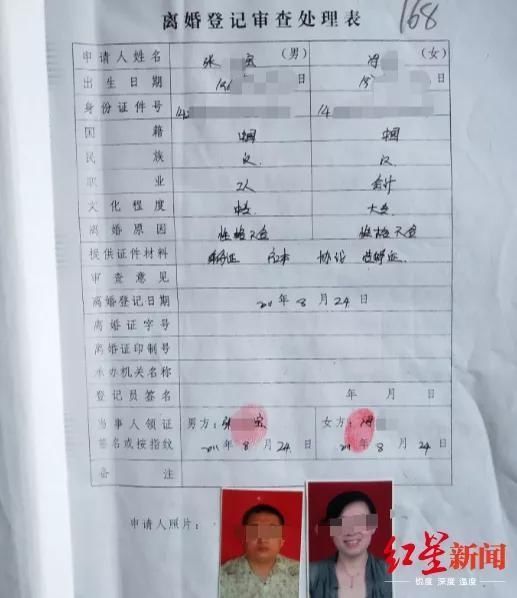 离婚登记审查处理表
168
申请人姓名 张 宝 (男) 冯 (女)
出生日期 196 日 19 日
身份证件号 14 14
国籍 中国 中国
民族 汉 汉
职业 工人 会计
文化程度 中专 大专
离婚原因 性格不合 性格不合
提供证件材料 身份证 户口本 协议 结婚证
审查意见
离婚登记日期 2011年8月24日
离婚证字号
离婚证印制号
承办机关名称
登记员签名 年 月 日
当事人领证 男方:张 宝 女方:冯
签名或按指纹 2011年8月24日 2011年8月24日
备注
申请人照片:
红星新闻
锐度 深度 温度